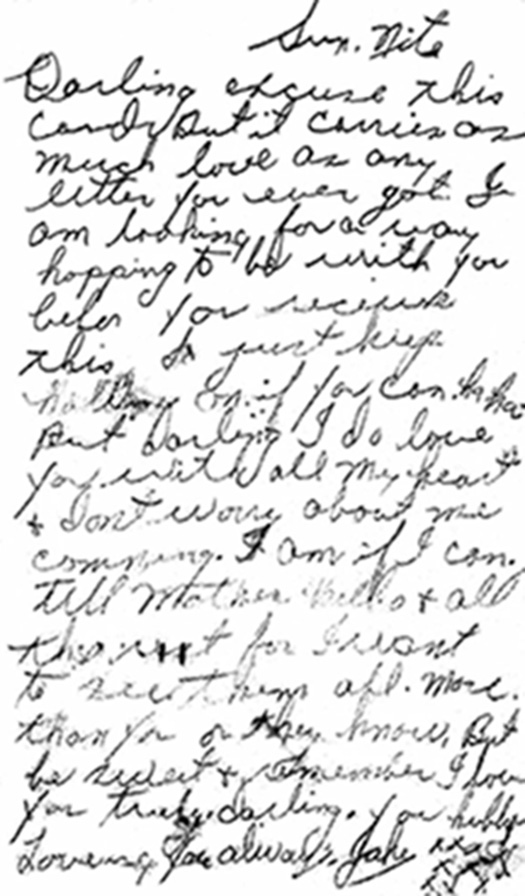 Sun. Nite
Darling excuse this
Card, But it carries as
much love as any
letter you ever got. I
am looking for a way
hopping to be with you
befor you recieve
this. I just keep
on if you can.
But Darling I do love
you with all my heart
+ Don't worry about me
comming. I am if I can.
tell Mother Hello + all
the rest for I want
to see them all. More.
than you or they know, But
be sweet + remember I love
you truly, darling. your hubby
Loveing you always. Jake xxxx